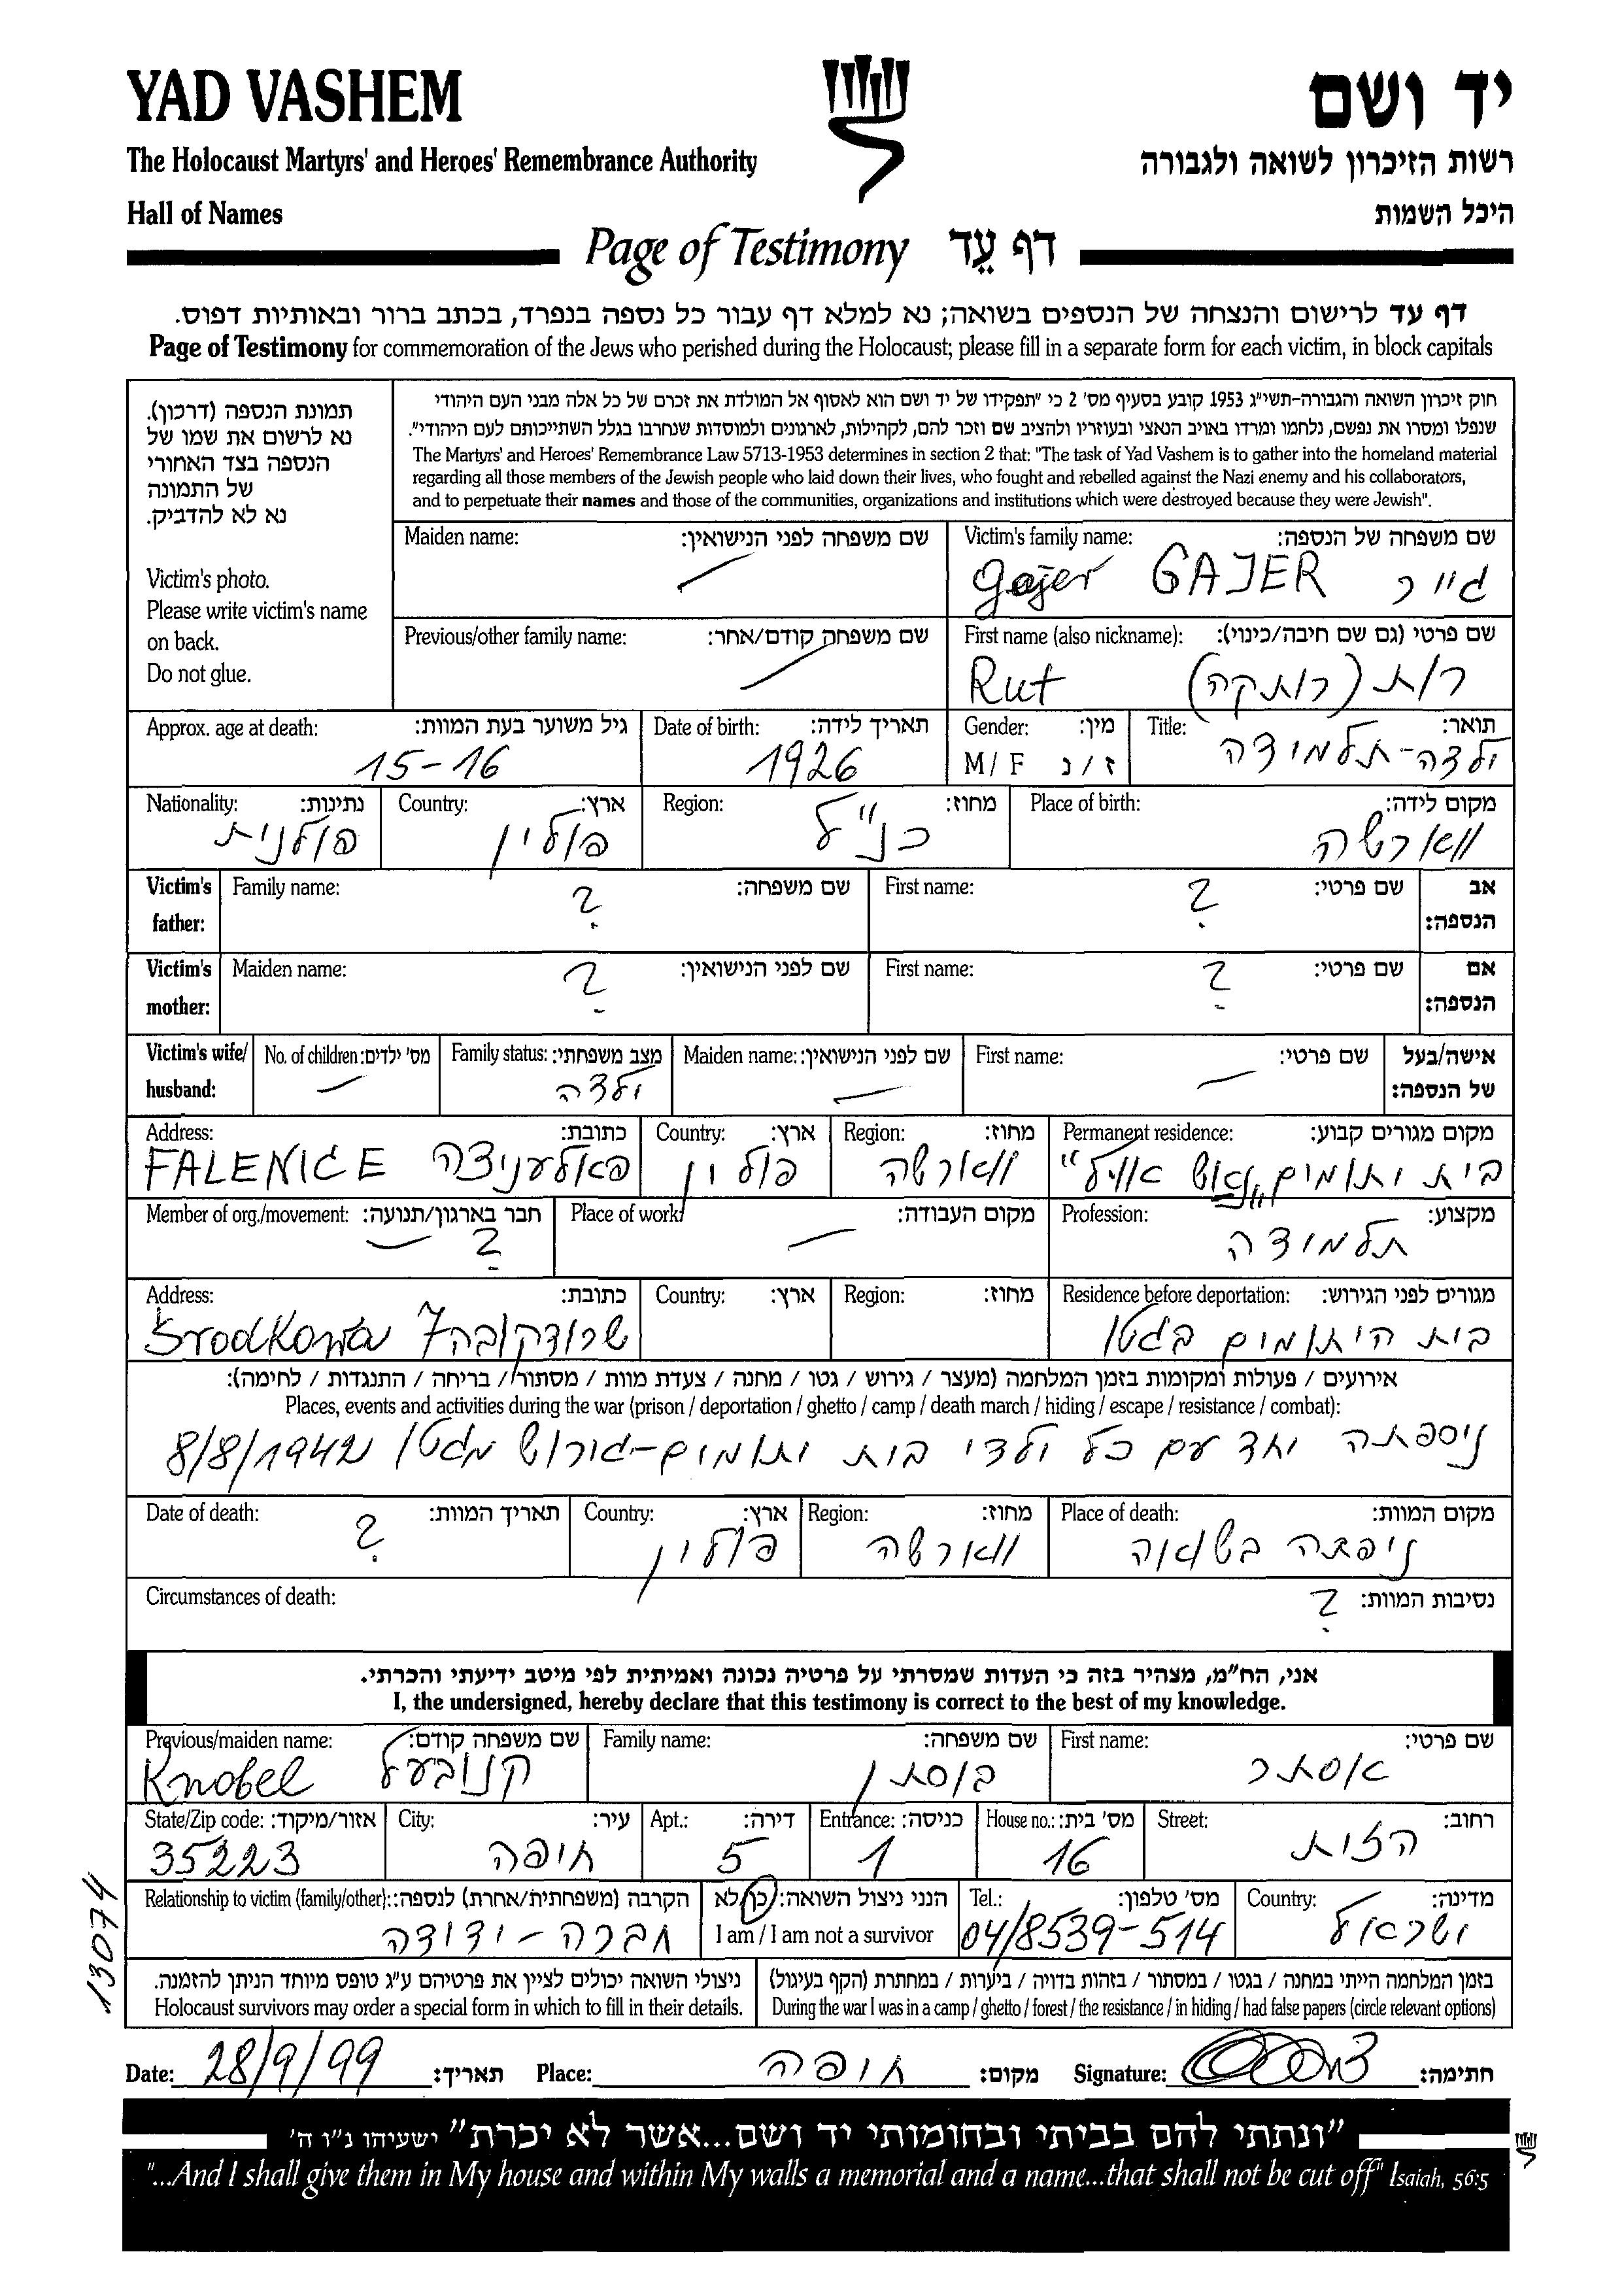 YAD VASHEM
יד ושם
The Holocaust Martyrs' and Heroes' Remembrance Authority
רשות הזיכרון לשואה ולגבורה
Hall of Names
היכל השמות
Page of Testimony דף עֵד
דף עד לרישום והנצחה של הנספים בשואה; נא למלא דף עבור כל נספה בנפרד, בכתב ברור ובאותיות דפוס.
Page of Testimony for commemoration of the Jews who perished during the Holocaust; please fill in a separate form for each victim, in block capitals
תמונת הנספה (דרכון).
נא לרשום את שמו של
הנספה בצד האחורי
של התמונה
נא לא להדביק.
Victim's photo.
Please write victim's name
on back.
Do not glue.
חוק זיכרון השואה והגבורה-תשי"ג 1953 קובע בסעיף מס' 2 כי "תפקידו של יד ושם הוא לאסוף אל המולדת את זכרם של כל אלה מבני העם היהודי
שנפלו ומסרו את נפשם, נלחמו ומרדו באויב הנאצי ובעוזריו ולהציב שם וזכר להם, לקהילות, לארגונים ולמוסדות שנחרבו בגלל השתייכותם לעם היהודי".
The Martyrs' and Heroes' Remembrance Law 5713-1953 determines in section 2 that: "The task of Yad Vashem is to gather into the homeland material
regarding all those members of the Jewish people who laid down their lives, who fought and rebelled against the Nazi enemy and his collaborators,
and to perpetuate their names and those of the communities, organizations and institutions which were destroyed because they were Jewish".
Victim's family name: שם משפחה של הנספה:
Gajer GAJER גייר
Maiden name: שם משפחה לפני הנישואין:
First name (also nickname): שם פרטי (גם שם חיבה/כינוי):
Rut רות (רותקה)
Previous/other family name: שם משפחה קודם/אחר:
Title: תואר:
ילדה-תלמידה
Gender: מין:
M / F ז / נ
Date of birth: תאריך לידה:
1926
Approx. age at death: גיל משוער בעת המוות:
15-16
Place of birth: מקום לידה:
ווארשה
Region: מחוז:
כנ"ל
Country: ארץ:
פולין
Nationality: נתינות:
פולנית
Victim's father: אב הנספה:
First name: שם פרטי:
?
Family name: שם משפחה:
?
Victim's mother: אם הנספה:
First name: שם פרטי:
?
Maiden name: שם לפני הנישואין:
?
Victim's wife/ husband: אישה/בעל של הנספה:
First name: שם פרטי:
Maiden name: שם לפני הנישואין:
Family status: מצב משפחתי:
ילדה
No. of children: מס' ילדים:
Permanent residence: מקום מגורים קבוע:
בית יתומים
Region: מחוז:
ווארשה
Country: ארץ:
פולין
Address: כתובת:
FALENICE פאלעניצה
Profession: מקצוע:
תלמידה
Place of work: מקום העבודה:
Member of org./movement: חבר בארגון/תנועה:
?
Residence before deportation: מגורים לפני הגירוש:
בית היתומים בגטו
Region: מחוז:
Country: ארץ:
Address: כתובת:
Środkowa 7 שרודקובה
אירועים / פעולות ומקומות בזמן המלחמה (מעצר / גירוש / גטו / מחנה / צעדת מוות / מסתור / בריחה / התנגדות / לחימה):
Places, events and activities during the war (prison / deportation / ghetto / camp / death march / hiding / escape / resistance / combat):
ניספתה יחד עם כל ילדי בית יתומים-גורוש מגטו 8/8/1942
Place of death: מקום המוות:
ניפתה בשואה
Region: מחוז:
ווארשה
Country: ארץ:
פולין
Date of death: תאריך המוות:
?
Circumstances of death: נסיבות המוות:
?
אני, הח"מ, מצהיר בזה כי העדות שמסרתי על פרטיה נכונה ואמיתית לפי מיטב ידיעתי והכרתי.
I, the undersigned, hereby declare that this testimony is correct to the best of my knowledge.
First name: שם פרטי:
אסתר
Family name: שם משפחה:
בוסתן
Previous/maiden name: שם משפחה קודם:
Knobel קנובעל
Street: רחוב:
הזית
House no.: מס' בית:
16
Entrance: כניסה:
1
Apt.: דירה:
5
City: עיר:
חיפה
State/Zip code: אזור/מיקוד:
35223
Country: מדינה:
ישראל
Tel.: מס' טלפון:
04/8539-514
הנני ניצול השואה: כן/לא
I am / I am not a survivor
Relationship to victim (family/other): הקרבה (משפחתית/אחרת) לנספה:
חברה-ידידה
13074
בזמן המלחמה הייתי במחנה / בגטו / במסתור / בזהות בדויה / ביערות / במחתרת (הקף בעיגול)
During the war I was in a camp / ghetto / forest / the resistance / in hiding / had false papers (circle relevant options)
ניצולי השואה יכולים לציין את פרטיהם ע"ג טופס מיוחד הניתן להזמנה.
Holocaust survivors may order a special form in which to fill in their details.
Date: 28/9/99 תאריך: Place: חיפה מקום: Signature: חתימה:
"ונתתי להם בביתי ובחומותי יד ושם...אשר לא יכרת" ישעיהו נ"ו ה'
"...And I shall give them in My house and within My walls a memorial and a name...that shall not be cut off" Isaiah, 56:5